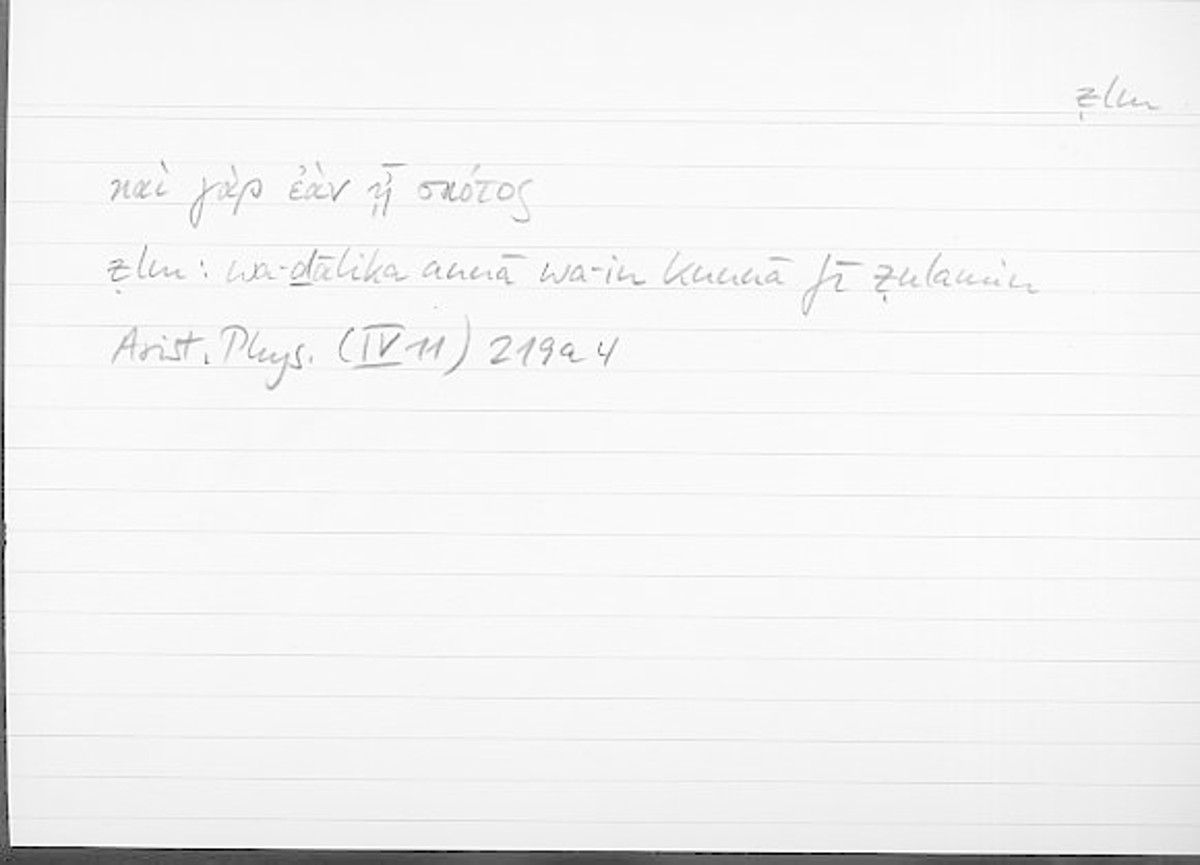 ẓlm
καὶ γὰρ ἐὰν ᾖ σκότος
ẓlm: wa-ḏālika annā wa-in kunnā fī ẓulamin
Arist. Phys. (IV 11) 219a4